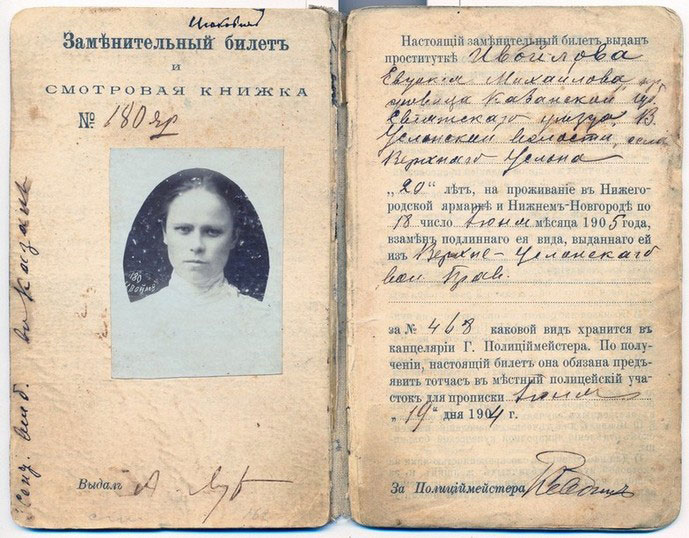 Замѣнительный билетъ
и
СМОТРОВАЯ КНИЖКА
№ 180 яр
180
Выдалъ А.
Настоящій замѣнительный билетъ выданъ
проституткѣ Ивойлова
Евдокія Михайлова
Казанской губ.
уѣзда, В.
Услонской волости, села
Верхняго Услона
„20“ лѣтъ, на проживаніе въ Нижего-
родской ярмаркѣ и Нижнемъ-Новгородѣ по
18 число Іюня мѣсяца 1905 года,
взамѣнъ подлиннаго ея вида, выданнаго ей
изъ Верхне-Услонскаго
вол. Прав.
за № 468 каковой видъ хранится въ
канцеляріи Г. Полиціймейстера. По полу-
ченіи, настоящій билетъ она обязана предъ-
явить тотчасъ въ мѣстный полицейскій уча-
стокъ для прописки Іюня
„19“ дня 1904 г.
За Полиціймейстера